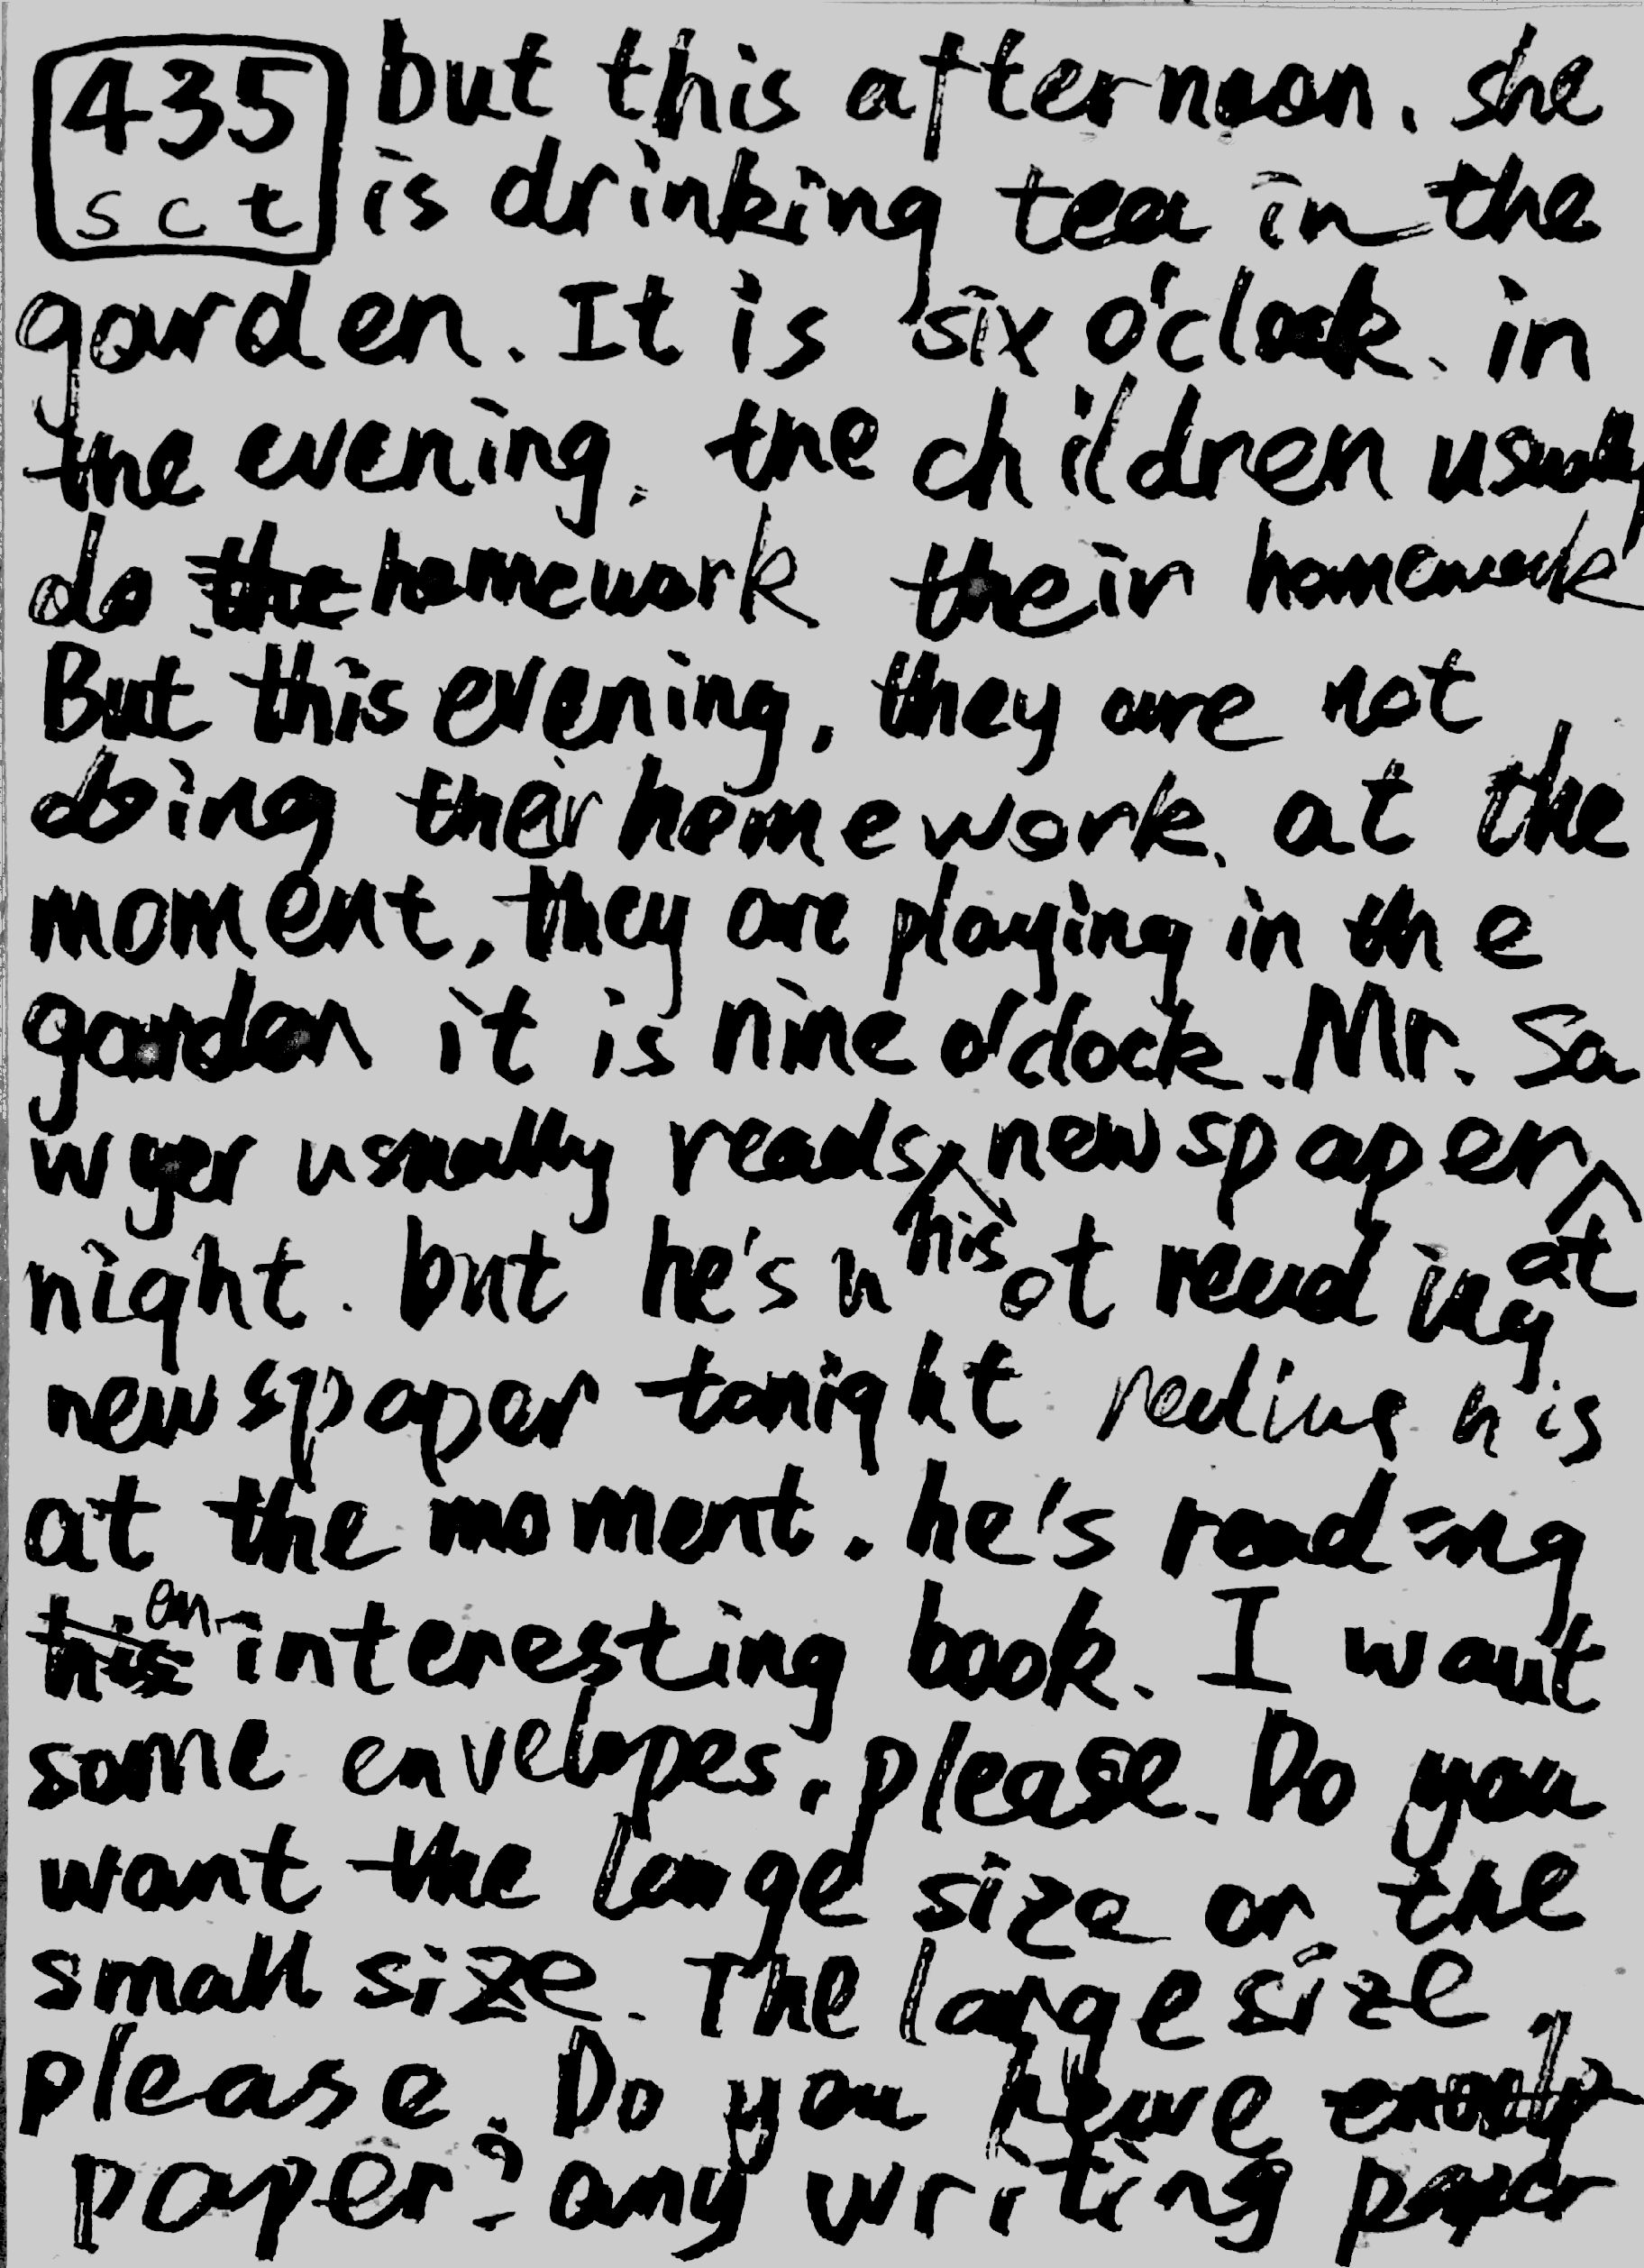 435 but this afternoon. she
sct is drinking tea in the
garden. It is six o'clock. in
the evening. the children usually
do the homework their homework
But this evening, they are not
doing their homework. at the
moment, they are playing in the
garden it is nine o'clock. Mr. Sa
wyer usually reads newspaper
his at
night. but he's not reading
newspaper tonight reding his
at the moment. he's reading
an
his interesting book. I want
some envelopes, please. Do you
want the large size or the
small size. The large size.
please. Do you have
paper? any writing paper